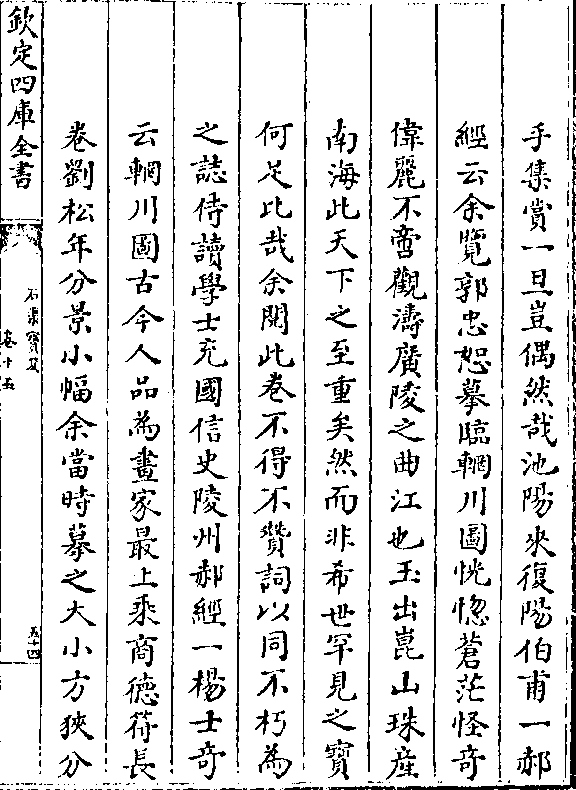 手集賞一旦豈偶然哉池陽來復陽伯甫一郝
經云余覽郭忠恕摹臨輞川圖恍惚蒼茫怪竒
偉麗不啻觀濤廣陵之曲江也玉出崑山珠產
南海此天下之至重矣然而非希世罕見之寶
何足比哉余閱此卷不得不贊詞以同不朽為
之誌侍讀學士充國信史陵州郝經一楊士竒
云輞川圖古今人品為畫家最上乘商德符長
卷劉松年分景小幅余當時摹之大小方狹分
欽定四庫全書
石渠寶笈
卷十五
五十四